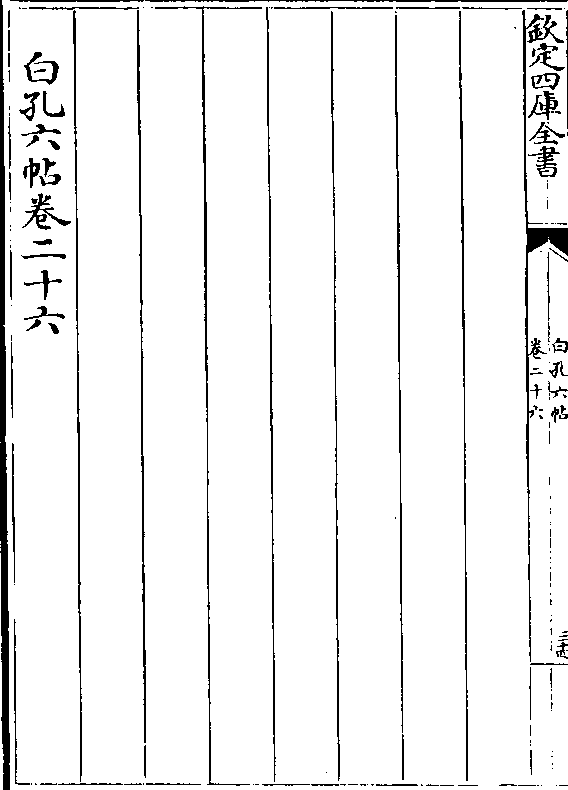 欽定四庫全書
白孔六帖
卷二十六
白孔六帖卷二十六